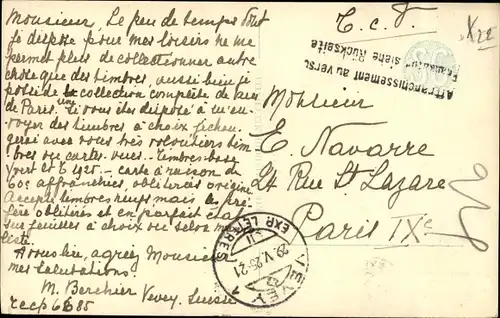 Monsieur, Le peu de temps dont
je dispose pour mes loisirs ne me
permet plus de collectionner autre
chose que des timbres, aussi bien je
possède la collection complète de vues
de Paris. Si vous êtes disposé à m'en-
voyer des timbres à choix j'échan-
gerai avec vous très volontiers tim-
bres ou cartes-vues - timbres base
Yvert et T 1925 - carte à raison du
60c affranchies, oblitérées origine
Accepte timbres neufs mais les pré-
fère oblitérés et en parfait état
sur feuilles à choix ou selon man-
liste.
A vous lire, agréez Monsieur
mes salutations.
M. Berchier Vevey. Suisse
T.c.V.
Affranchissement au verso
Frankatur siehe Rückseite
Monsieur
E. Navarre
24 Rue St Lazare
Paris IXe
VEVEY 1
EXP. LETTRES
29.V.25-21